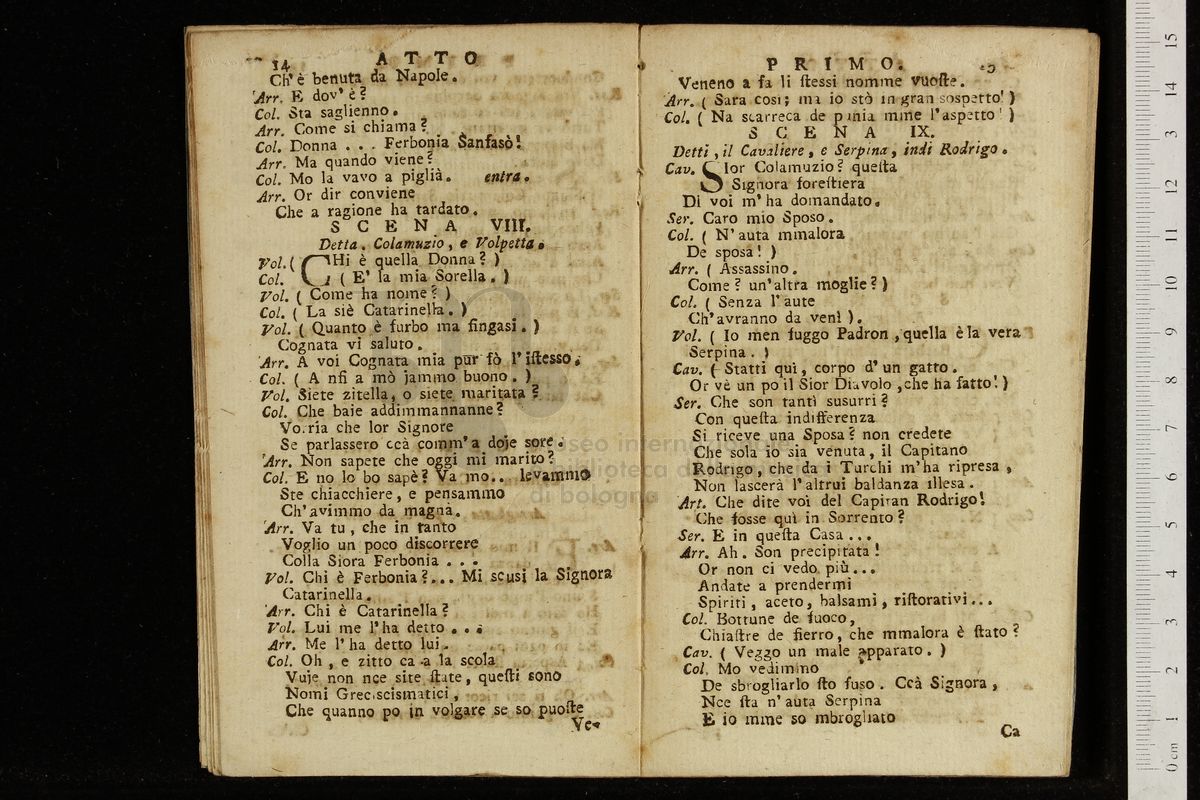 14 ATTO
Ch'è benuta da Napole.
Arr. E dov'è?
Col. Sta saglienno.
Arr. Come si chiama?
Col. Donna . . . Ferbonia Sanfasò!
Arr. Ma quando viene?
Col. Mo la vavo a piglià. entra.
Arr. Or dir conviene
Che a ragione ha tardato.
SCENA VIII.
Detta, Colamuzio, e Volpetta.
Vol. ( CHi è quella Donna? )
Col. ( E' la mia Sorella. )
Vol. ( Come ha nome? )
Col. ( La siè Catarinella. )
Vol. ( Quanto è furbo ma fingasi. )
Cognata vi saluto.
Arr. A voi Cognata mia pur fò l'istesso.
Col. ( A nfi a mò jammo buono. )
Vol. Siete zitella, o siete maritata?
Col. Che baie addimmannanne?
Vorria che lor Signore
Se parlassero ccà comm'a doje sore.
Arr. Non sapete che oggi mi marito?
Col. E no lo bo sapè? Va mo.. levammo
Ste chiacchiere, e pensammo
Ch'avimmo da magna.
Arr. Va tu, che in tanto
Voglio un poco discorrere
Colla Siora Ferbonia . . .
Vol. Chi è Ferbonia?... Mi scusi la Signora
Catarinella.
Arr. Chi è Catarinella?
Vol. Lui me l'ha detto . . .
Arr. Me l'ha detto lui.
Col. Oh, e zitto ca a la scola
Vuje non nce site state, questi sono
Nomi Greciscismatici,
Che quanno po in volgare se so puoste
Ve-
PRIMO.
Veneno a fa li stessi nomme vuoste.
Arr. ( Sara così; ma io stò in gran sospetto! )
Col. ( Na scarreca de pinia mme l'aspetto! )
SCENA IX.
Detti, il Cavaliere, e Serpina, indi Rodrigo.
Cav. SIor Colamuzio? questa
Signora forestiera
Di voi m'ha domandato.
Ser. Caro mio Sposo.
Col. ( N'auta mmalora
De sposa! )
Arr. ( Assassino.
Come? un'altra moglie? )
Col. ( Senza l'aute
Ch'avranno da venì ).
Vol. ( Io men fuggo Padron, quella è la vera
Serpina. )
Cav. ( Statti quì, corpo d'un gatto.
Or vè un po il Sior Diavolo, che ha fatto! )
Ser. Che son tanti susurri?
Con questa indifferenza
Si riceve una Sposa? non credete
Che sola io sia venuta, il Capitano
Rodrigo, che da i Turchi m'ha ripresa,
Non lascerà l'altrui baldanza illesa.
Art. Che dite voi del Capitan Rodrigo!
Che fosse quì in Sorrento?
Ser. E in questa Casa...
Arr. Ah. Son precipitata!
Or non ci vedo più...
Andate a prendermi
Spiriti, aceto, balsami, ristorativi...
Col. Bottune de fuoco,
Chiastre de fierro, che mmalora è stato?
Cav. ( Veggo un male apparato. )
Col. Mo vedimmo
De sbrogliarlo sto fuso. Ccà Signora,
Nce sta n'auta Serpina
E io mme so mbrogliato
Ca